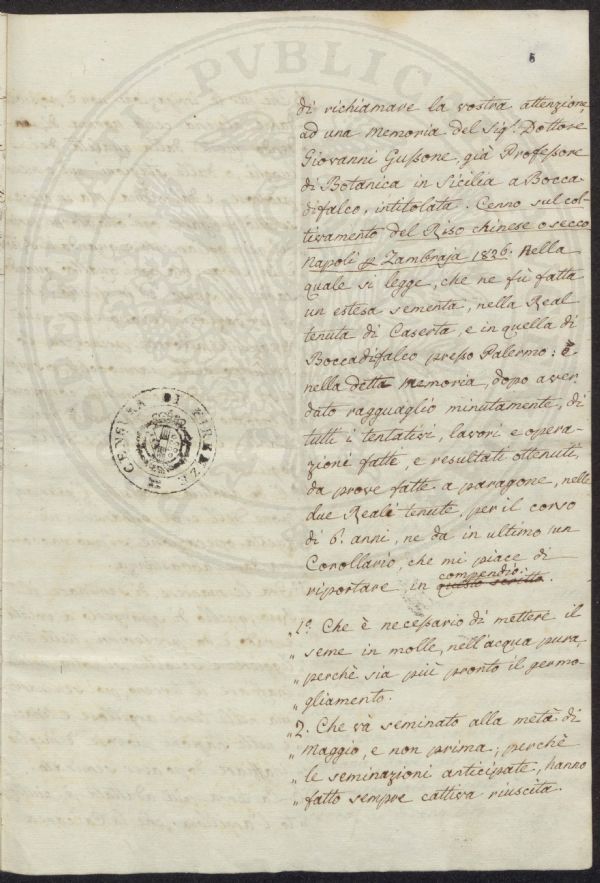 6
di richiamare la vostra attenzione
ad una Memoria del Sig.r Dottore
Giovanni Gussone, già Professore
di Botanica in Sicilia a Bocca
difalco, intitolata. Cenno sul col-
tivamento del Riso chinese o secco
Napoli Zambraja 1826. Nella
quale si legge, che ne fù fatta
un estesa sementa, nella Real
tenuta di Caserta, e in quella di
Boccadifalco presso Palermo: E
nella detta Memoria, dopo aver
dato ragguaglio minutamente, di
tutti i tentativi, lavori e opera-
zioni fatte, e resultati ottenuti,
da prove fatte a paragone, nelle
due Reali tenute, per il corso
di 6. anni, ne da in ultimo un
Corollario, che mi piace di
compendio.
riportare, in questo scritto.
„1.° Che è necessario di mettere il
„ seme in molle, nell'acqua pura,
„ perchè sia più pronto il germo-
„ gliamento.
„2. Che và seminato alla metà di
„ Maggio, e non prima, perchè
„ le seminazioni anticipate, hanno
„ fatto sempre cattiva riuscita.
CENSURA DI FIRENZE
PVBLICA